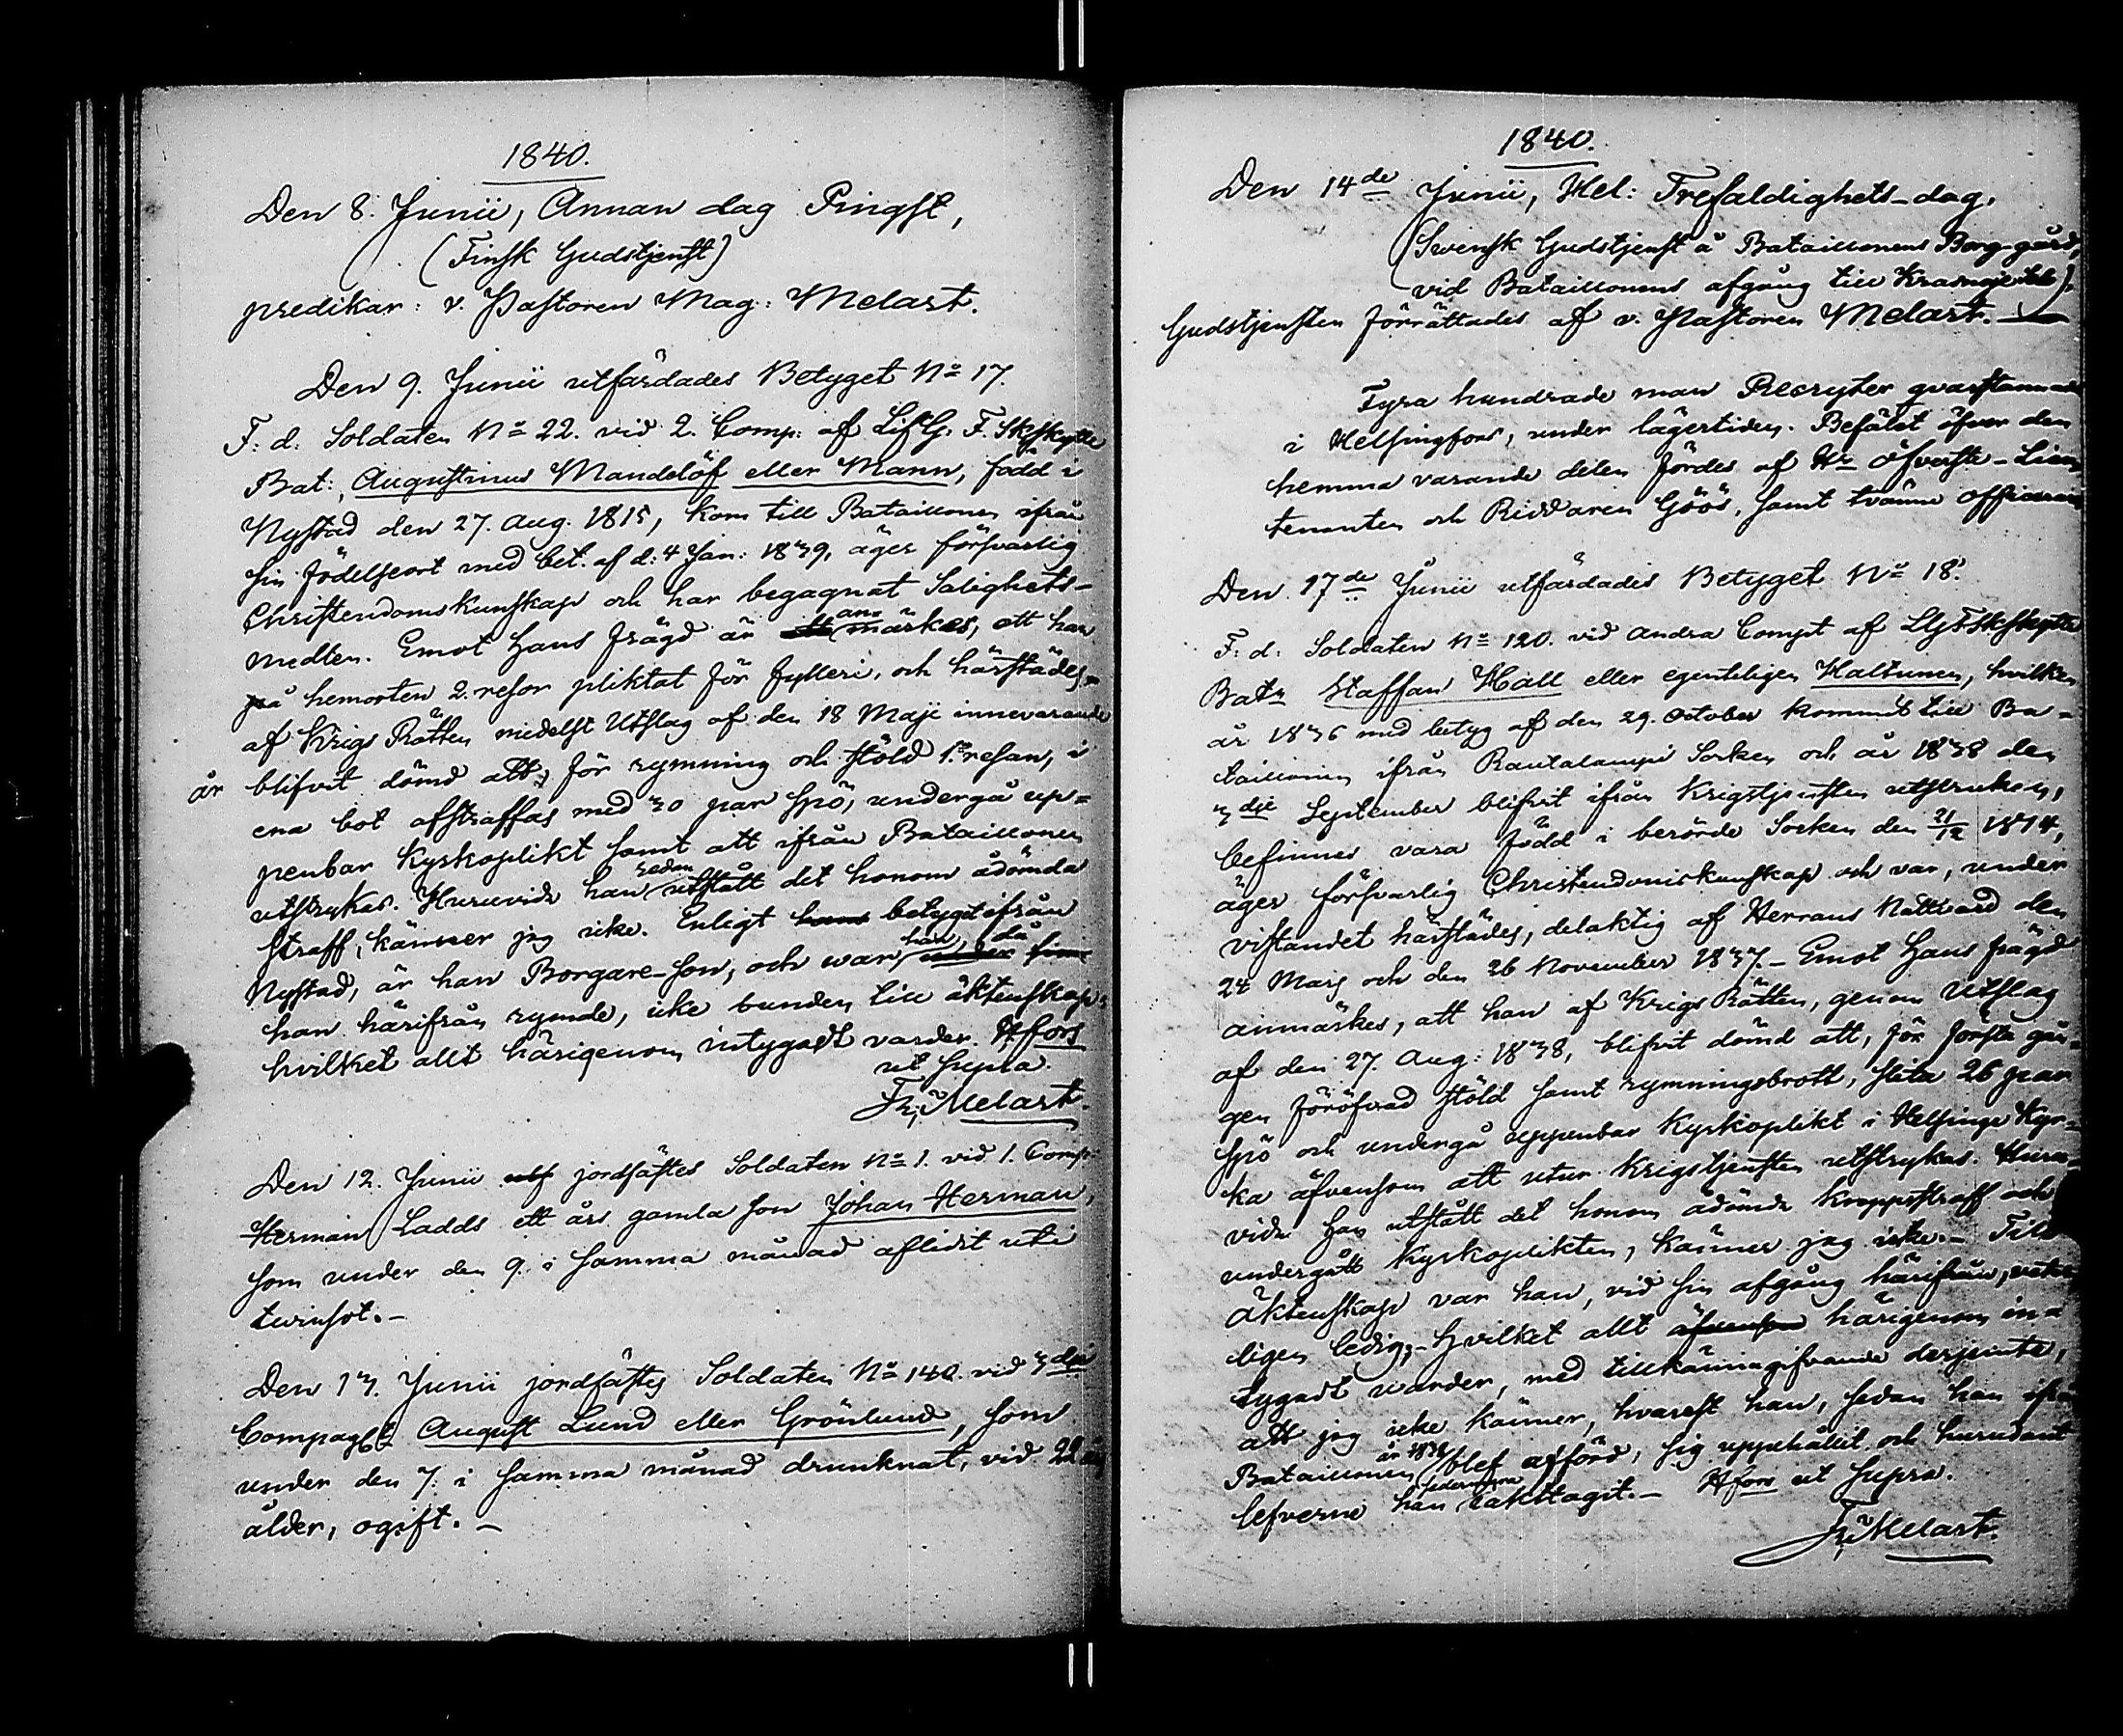 1840.
Den 8. Junii, Annan dag Pingst,
(Finsk Gudstjenst)
predikar: v. Pastoren Mag: Melart.
Den 9. Junii utfärdades Betyget No 17.
F: d: Soldaten No 22. vid 2. Comp: af LifG. F. Skfskytte
Bat:, Augustinus Mandelöf eller Mann, född i
Nystad den 27. Aug. 1815, kom till Bataillonen ifrån
sin födelseort med bet. af d: 4 Jan: 1839, äger försvarlig
Christendomskunskap och har begagnat Salighets-
medlen. Emot Hans frägd är anmärkes, att han
på hemorten 2. resor pliktat för fylleri, och härstädes
af Krigs Rätten medelst Utslag af den 18 Maji innevarande
år blifvit dömd att, för rymning och stöld 1. resan, i
ena bot afstraffas med 30 par spö, undergå up-
penbar Kyrkoplikt samt att ifrån Bataillonen
utstrykas. Huruvida han sedan utstått det honom ådömda
straff, känner jag icke. Enligt hans betyget ifrån
Nystad, är han Borgare-son, och war han, då
han härifrån rymde, icke bunden till äktenskap;
hvilket allt härigenom intygadt varder. Hfors
ut supra.
Fr: Melart.
Den 12. Junii jordfästes Soldaten No 1. vid 1. Comp:
Herman Ladds ett års gamla son Johan Herman,
som under den 9. i samma månad aflidit uti
twinsot.-
Den 13. Junii jordfästes Soldaten No 140. vid 3dje
Compagt August Lund eller Grönlund, som
under den 7. i samma månad drunknat, vid 22 års
ålder, ogift. -
1840.
Den 14de Junii, Hel: Trefaldighets-dag.
(Svensk Gudstjenst å Bataillonens Borg-gård,
vid Bataillonens afgång till Krasnoje Selo).
Gudstjensten förrättades af v. Pastoren Melart.
Fyra hundrade man Recryter qvarstannade
i Helsingfors, under lägertiden. Befälet öfver den
hemma varande delen fördes af Hr Öfverste-Lieu-
tenanten och Riddaren Göös, samt tvänne officerare
Den 17de Junii utfärdades Betyget No 18.
F: d: Soldaten No 120. vid andra Compt af LGFSkfskytte
Batn Staffan Hall eller egenteligen Haltunen, hvilken
år 1836 med betyg af den 29. October kommit till Ba-
taillonen ifrån Rautalampi Socken och år 1838 den
3dje September blifvit ifrån Krigstjensten utstruken,
befinnes vara född i berörde Socken den 21/12 1814,
äger försvarlig Christendomskunskap och var, under
vistandet härstädes, delaktig af Herrans Nattvard den
24 Mars och den 26 November 1837. - Emot Hans frägd
anmärkes, att han af Krigs Rätten, genom Utslag
af den 27. Aug: 1838, blifvit dömd att, för första gån-
gen föröfvad stöld samt rymningsbrott, slita 26 par
spö och undergå uppenbar Kyrkoplikt i Helsinge Kyr-
ka äfvensom att utur Krigstjensten utstrykas. Huru-
vida han utstått det honom ådömde kroppsstraff och
undergått Kyrkoplikten, känner jag icke. - Till
äktenskap var han, vid sin afgång härifrån, veter-
ligen ledig; - Hvilket allt äfvensom härigenom in-
tygadt warder, med tillkännagifvande derjemte,
att jag icke känner, hvarest han, sedan han ifrån
Bataillonen år 1838 blef afförd, sig uppehållit och hurudant
lefverne han sedermera iakttagit. - Hfors ut supra.
Fr: Melart.